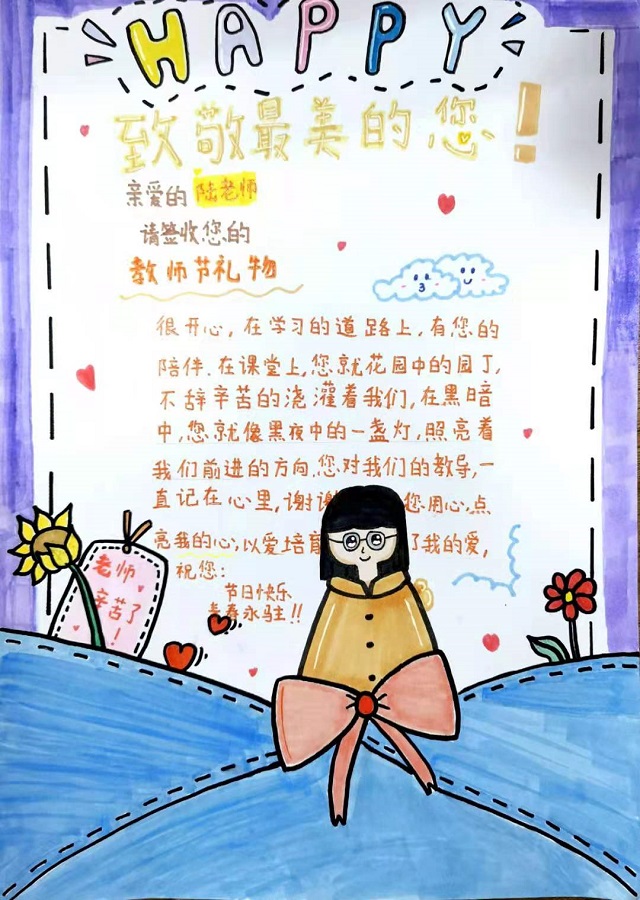 HAPPY
致敬最美的您!
亲爱的 陆老师
请签收您的
教师节礼物
很开心,在学习的道路上,有您的
陪伴.在课堂上,您就花园中的园丁,
不辞辛苦的浇灌着我们,在黑暗
中,您就像黑夜中的一盏灯,照亮着
我们前进的方向.您对我们的教导,一
直记在心里,谢谢 您用心点
亮我的心,以爱培育 了我的爱,
祝您:
节日快乐
青春永驻!!
老师
辛苦了
!